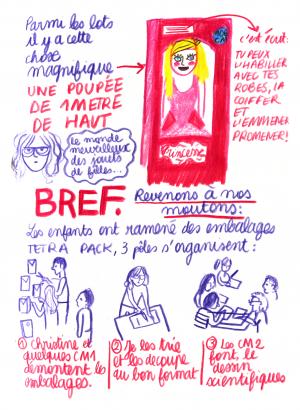 Parmi les lots
il y a cette
chose
magnifique
UNE POUPÉE
DE 1 METRE
DE HAUT
c'est écrit:
TU PEUX
L'HABILLER
AVEC TES
ROBES, LA
COIFFER
ET
L'EMMENER
PROMENER!
le monde
merveilleux
des jouets
de fêtes...
BREF. Revenons à nos
moutons:
Les enfants ont ramené des embalages
TETRA PACK, 3 pôles s'organisent:
① Christine et
quelques CM1
démontent les
embalages.
② Je les trie
et les découpe
au bon format
③ Les CM2
font, le
dessin
scientifiques